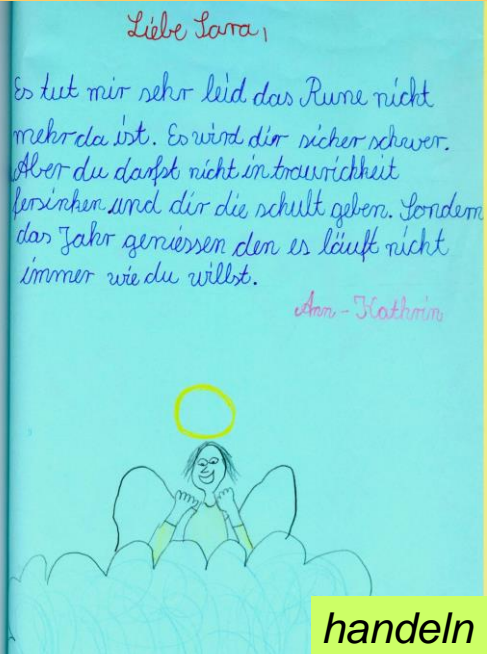 Liebe Sara,
Es tut mir sehr leid das Rune nicht
mehr da ist. Es wird dir sicher schwer.
Aber du darfst nicht in traurichkeit
fersinken und dir die schult geben. Sondern
das Jahr geniessen den es läuft nicht
immer wie du willst.
Ann-Kathrin
handeln